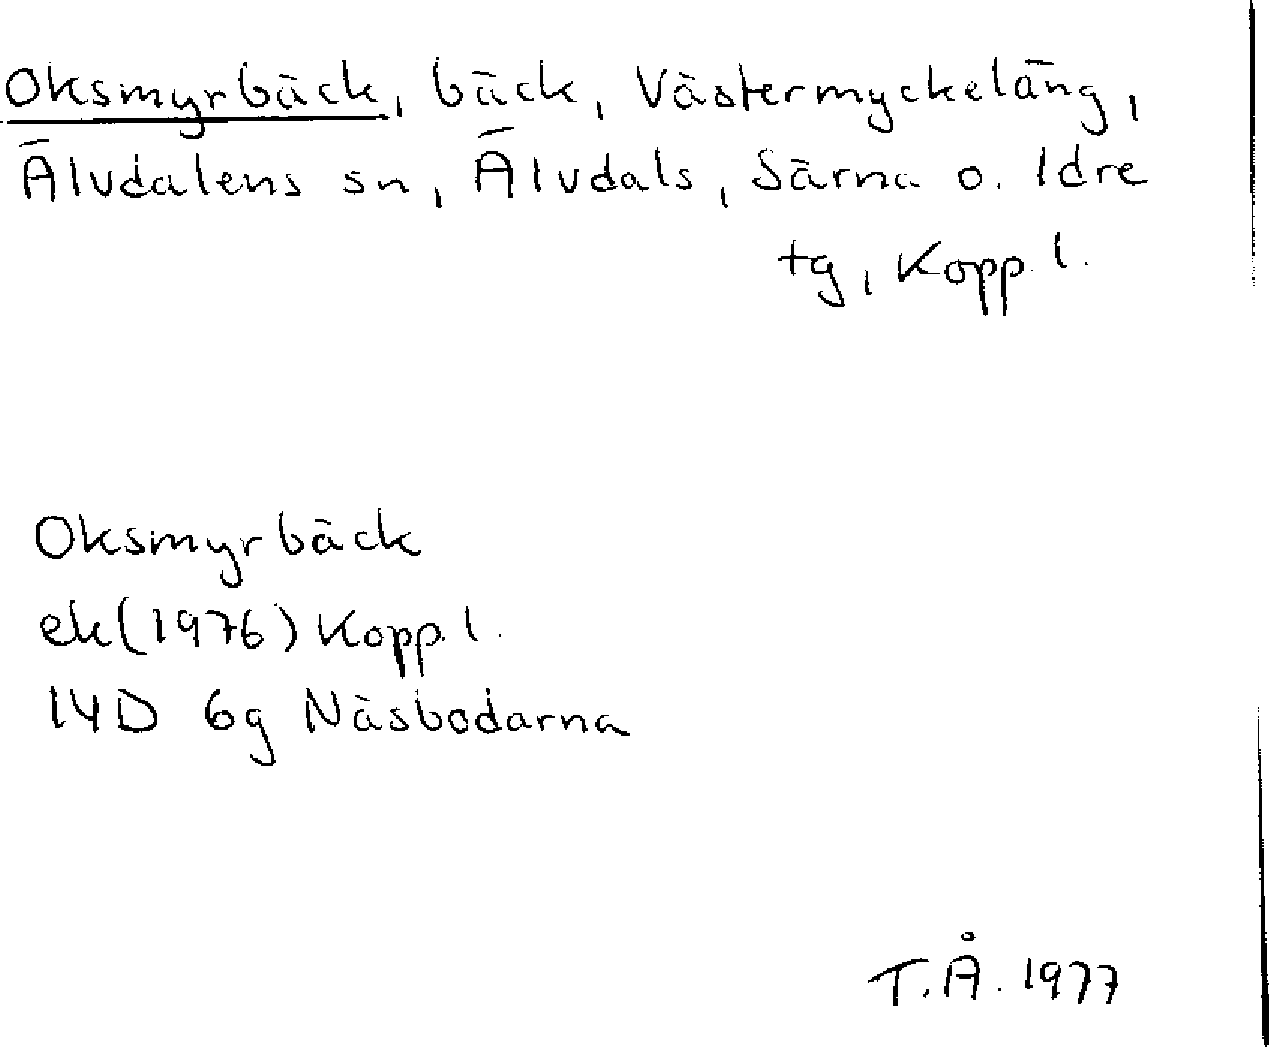 Oksmyrbäck, bäck, Västermyckeläng,
Älvdalens sn, Älvdals, Särna o. Idre
tg, Kopp. l.
Oksmyrbäck
ek (1976) Kopp. l.
14D 6g Näsbodarna
T.Å. 1977